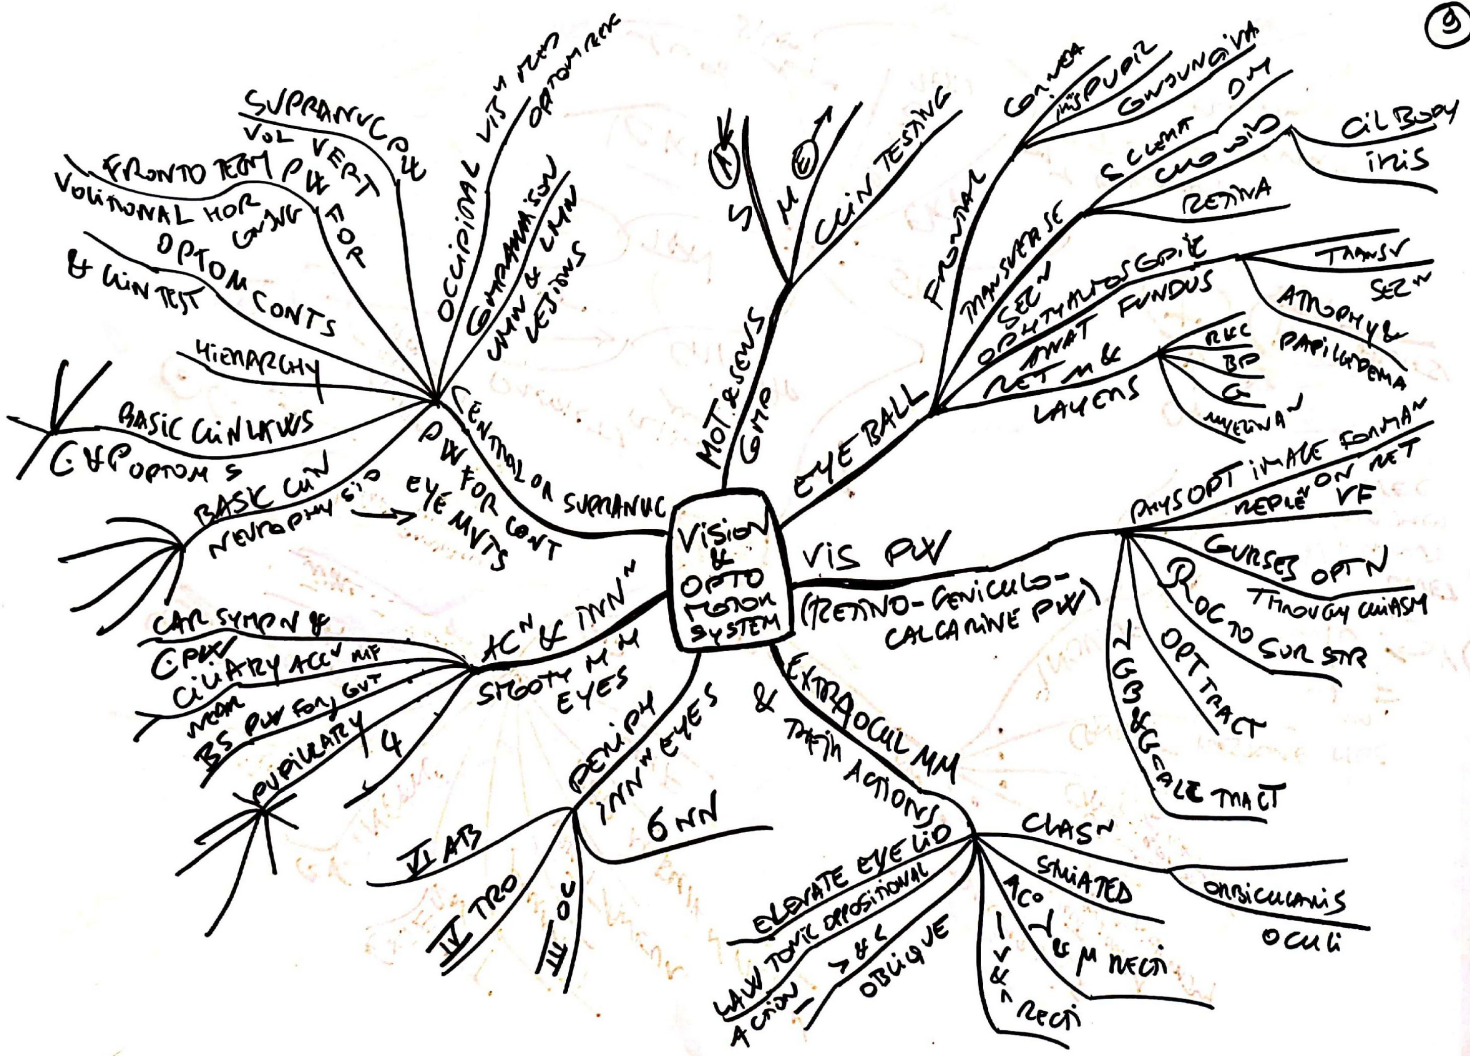 9
VISION
&
OPTO
MOTOR
SYSTEM
MOT & SENS
COMP
S
M
E
CLIN TESTING
EYE BALL
FRONTAL
CORNEA
IRIS PUPIL
CONJUNCTIVA
TRANSVERSE
SECN
SCLERA
CHOROID
CIL BODY
IRIS
RETINA
OPHTHALMOSCOPIC
ANAT FUNDUS
TRANSV
SECN
ATROPHY &
PAPILLEDEMA
RET M &
LAYERS
R&C
BP
G
MYELINAN
VIS PW
(RETINO-GENICULO-
CALCARINE PW)
PHYSOPT IMAGE FORMAN
ON RET
REPREN VF
COURSES OPT N
THROUGH CHIASM
R OC TO SUR STR
OPT TRACT
LGB & G-CALC TRACT
EXTRAOCUL MM
& THEIR ACTIONS
CLASN
ORBICULARIS
OCULI
STRIATED
ACO L & M RECTI
RECTI
OBLIQUE
LAW TONIC OPPOSITIONAL
ACTION
ELEVATE EYE LID
PERIPH
INNN EYES
6 NN
III OC
IV TRO
VI AB
ACN & INNN
SMOOTH MM
EYES
CAR SYMP N &
C PW
CILIARY ACCN MF
NEAR
BS PW FOR
PUPILLARY
4
CENTRAL OR SUPRANUC
PW FOR CONT
EYE MVTS
BASIC CLIN
NEUROPHYSIO
BASIC CLIN LAWS
C & P OPTOM S
HIERARCHY
OPTOM CONTS
& CLIN TEST
FRONTO TEGM PW FOR
VOLITIONAL HOR
CONJUG
SUPRANUC PW
VOL VERT
OCCIPITAL VISN MED
OPTOM REFL
COMPARAISON
UMN & LMN
LESIONS